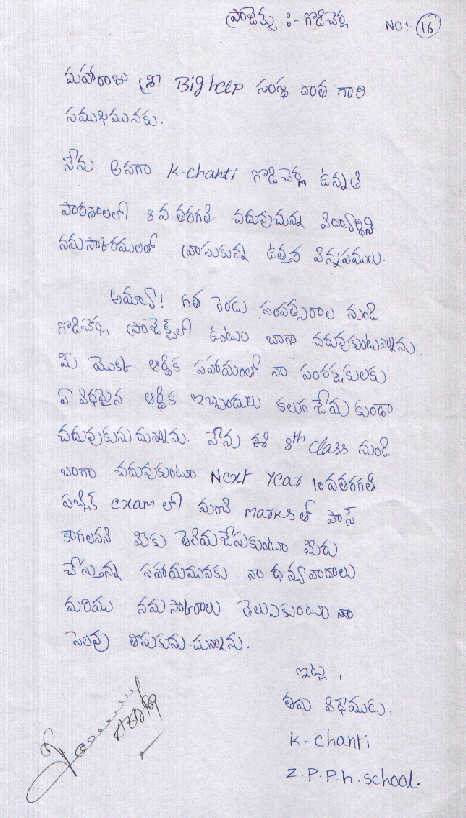 ప్రాజెక్ట్ :- గొడిచెర్ల NO: 16
మహారాజ శ్రీ Bighelp సంస్థ దాత గారి
సముఖమునకు.
నేను అనగా K-chanti గొడిచెర్ల ఉన్నత
పాఠశాలలో 8 వ తరగతి చదువుచున్న విద్యార్థిని
నమస్కారములతో వ్రాసుకున్న ఉత్తర విన్నపములు.
అమ్మా! గత రెండు సంవత్సరాల నుండి
గొడిచెర్ల ప్రాజెక్ట్‌లో ఉంటు బాగా చదువుకుంటున్నాను.
మీ యొక్క ఆర్థిక సహాయంతో నా సంరక్షకులకు
ఏ విధమైన ఆర్థిక ఇబ్బందులు కలుగ చేయకుండా
చదువుకుంటున్నాను. నేను ఈ 8th class నుండి
బాగా చదువుకుంటూ Next Year 10 వతరగతి
పబ్లిక్ exam లో మంచి marks తో పాస్
కాగలనని మీకు తెలియచేసుకుంటూ మీరు
చేస్తున్న సహాయమునకు నా ధన్యవాదాలు
మరియు నమస్కారాలు తెలుపుకుంటూ నా
సెలవు తీసుకుంటున్నాను.
ఇట్లు,
తమ విధేయుడు.
K. Chanti
Z.P.P.h.school.